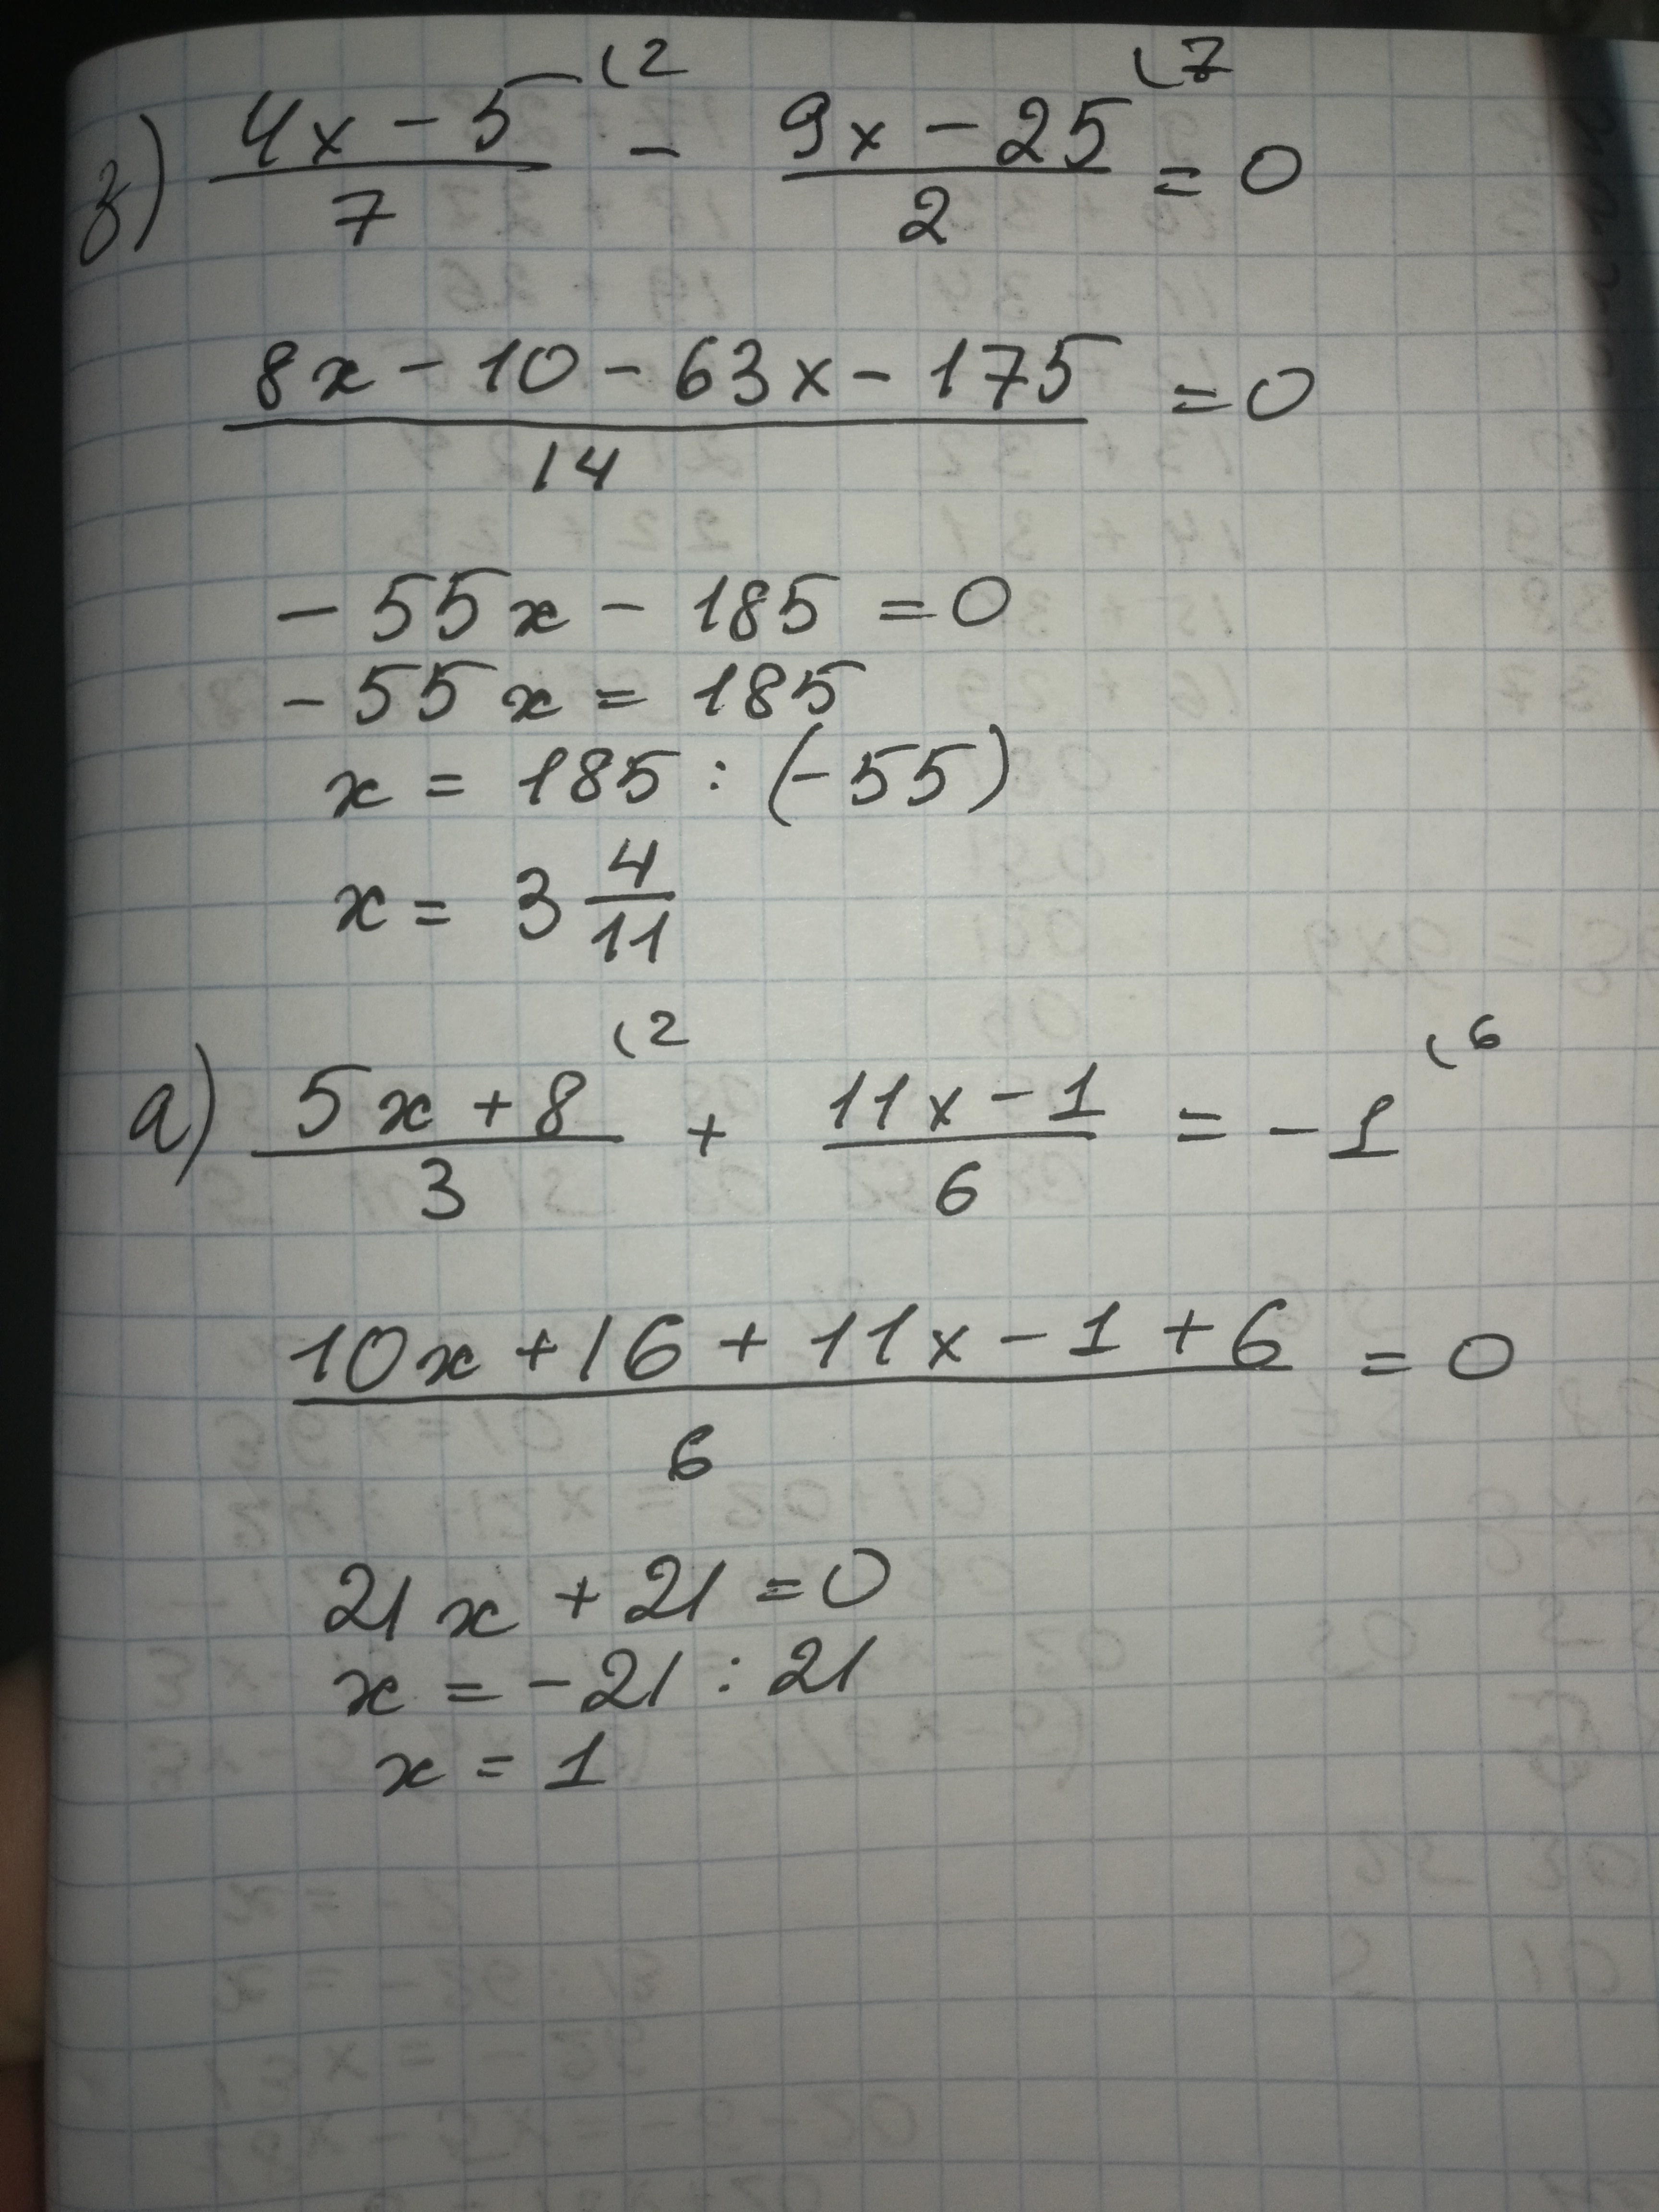 з) (4x - 5)/7 (2 - (9x - 25)/2 (7 = 0
(8x - 10 - 63x - 175)/14 = 0
- 55x - 185 = 0
- 55x = 185
x = 185 : (-55)
x = 3 4/11
а) (5x + 8)/3 (2 + (11x - 1)/6 = -1 (6
(10x + 16 + 11x - 1 + 6)/6 = 0
21x + 21 = 0
x = -21 : 21
x = 1